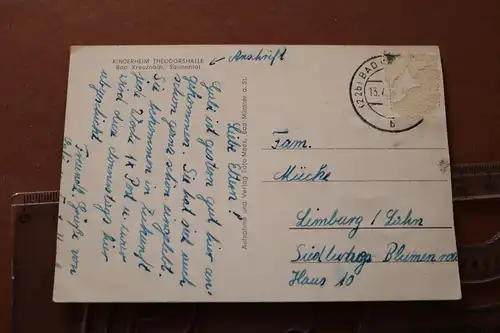 KINDERHEIM THEODORSHALLE
Bad Kreuznach, Salinental
↙ Anschrift
Liebe Eltern!
Gabi ist gestern gut hier an-
gekommen. Sie hat sich auch
schon ganz schön eingelebt.
Sie bekommen in Zukunft
jede Woche 1x Post u. zwar
wird diese donnerstags hier
abgeschickt.
Freundl. Grüße von
Aufnahme und Verlag Foto-Mees, Bad Münster a. St.
(22b) BAD
13.
b
Fam.
Mücke
Limburg / Lahn
Siedlung Blumenrod
Haus 10